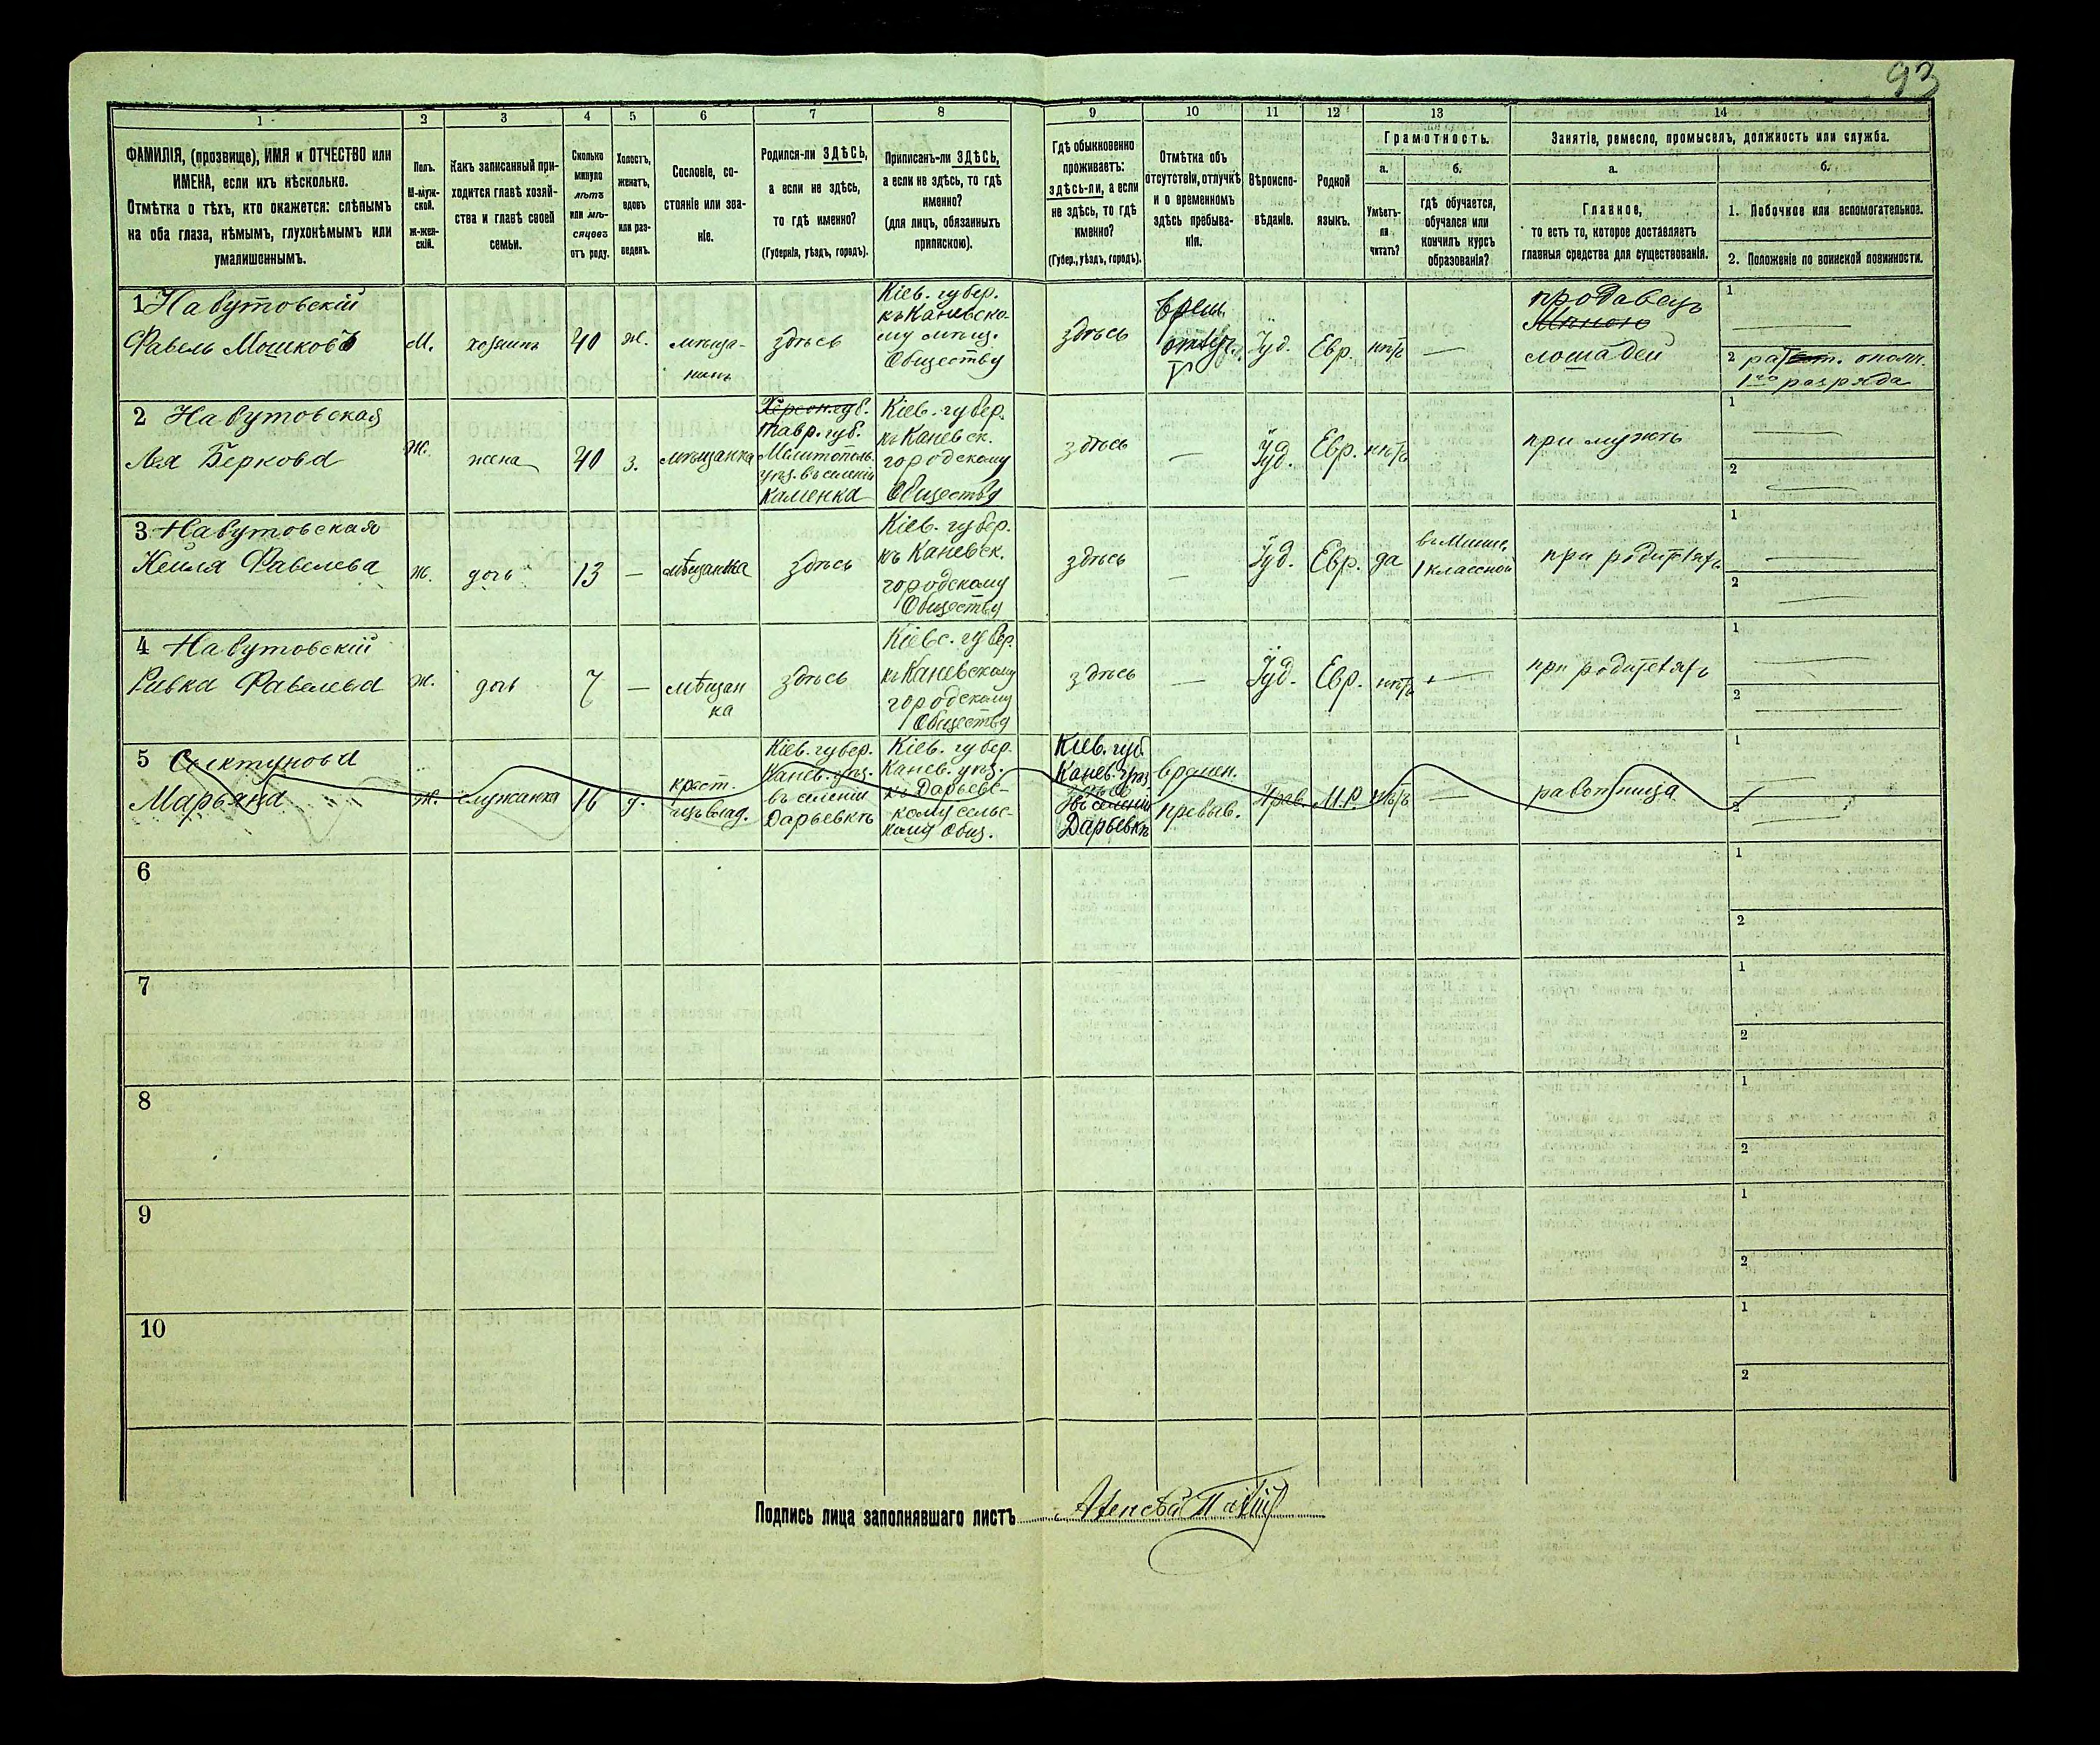 93
1
2
3
4
5
6
7
8
9
10
11
12
13
14
ФАМИЛІЯ, (прозвище), ИМЯ и ОТЧЕСТВО или
ИМЕНА, если ихъ нѣсколько.
Отмѣтка о тѣхъ, кто окажется: слѣпымъ
на оба глаза, нѣмымъ, глухонѣмымъ или
умалишеннымъ.
Полъ.
М-муж-
ской.
Ж-жен-
скій.
Какъ записанный при-
ходится главѣ хозяй-
ства и главѣ своей
семьи.
Сколько
минуло
лѣтъ
или мѣ-
сяцевъ
отъ роду.
Холостъ,
женатъ,
вдовъ
или раз-
веденъ.
Сословіе, со-
стояніе или зва-
ніе.
Родился-ли ЗДѢСЬ,
а если не здѣсь,
то гдѣ именно?
(Губернія, уѣздъ, городъ).
Приписанъ-ли ЗДѢСЬ,
а если не здѣсь, то гдѣ
именно?
(для лицъ, обязанныхъ
припискою).
Гдѣ обыкновенно
проживаетъ:
здѣсь-ли, а если
не здѣсь, то гдѣ
именно?
(Губер., уѣздъ, городъ).
Отмѣтка объ
отсутствіи, отлучкѣ
и о временномъ
здѣсь пребыва-
ніи.
Вѣроиспо-
вѣданіе.
Родной
языкъ.
Грамотность.
а.
Умѣетъ-
ли
читать?
б.
гдѣ обучается,
обучался или
кончилъ курсъ
образованія?
Занятіе, ремесло, промыселъ, должность или служба.
а.
Главное,
то есть то, которое доставляетъ
главныя средства для существованія.
б.
1. Побочное или вспомогательное.
2. Положеніе по воинской повинности.
1 Навутовскій
Фавель Мошковъ
М.
хозяинъ
40
ж.
мѣща-
нинъ
здѣсь
Кіев. губер.
къ Каневско-
му мѣщ.
Обществу
здѣсь
врем.
Іуд.
Евр.
нѣтъ
—
продавецъ
лошадей
1
2 рат. ополч.
1го разряда
2 Навутовская
Лея Беркова
Ж.
жена
40
з.
мѣщанка
Херсон. губ.
Тавр. губ.
Мелитополь.
уѣз. въ селеніи
Каменка
Кіев. губер.
къ Каневск.
городскому
Обществу
здѣсь
—
Іуд.
Евр.
нѣтъ
при мужѣ
1
2
3 Навутовская
Нешля Фавелева
ж.
дочь
13
—
мѣщанка
здѣсь
Кіев. губер.
къ Каневск.
городскому
Обществу
здѣсь
—
Іуд.
Евр.
да
1 классной
при родителяхъ
1
2
4 Навутовскій
Ривка Фавелева
ж.
дочь
7
—
мѣщан
ка
здѣсь
Кіевс. губер.
къ Каневскому
городскому
Обществу
здѣсь
—
Іуд.
Евр.
нѣтъ
—
при родителяхъ
1
2
5
Марьяна
ж.
служанка
16
д.
крест.
Кіев. губер.
Канев. уѣз.
въ селеніи
Дарьевкѣ
Кіев. губер.
Канев. уѣз.
къ Дарьевс-
кому сельс-
кому Общ.
Кіев. губ.
Канев. уѣз.
въ селеніи
Дарьевкѣ
времен.
пребыв.
Прав.
М.Р.
нѣтъ
—
работница
1
2
6
1
2
7
1
2
8
1
2
9
1
2
10
1
2
Подпись лица заполнявшаго листъ